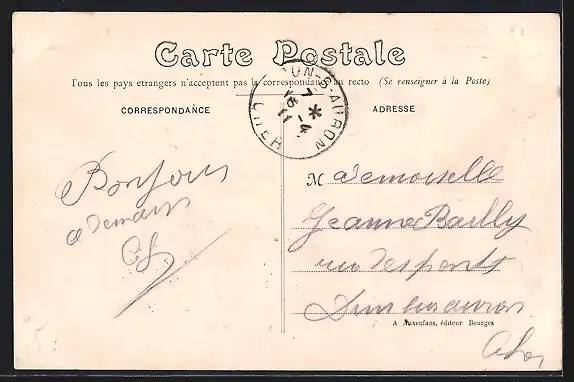 Carte Postale
Tous les pays etrangers n'acceptent pas la correspondance au recto (Se renseigner à la Poste)
CORRESPONDANCE
ADRESSE
UN-S-AURON
7 * -4
16 11
CHER
Bonjour
a demain
Mademoiselle
Jeanne Bailly
rue des ponts
Dun sur auron
A Auxenfans, éditeur Bourges
Cher